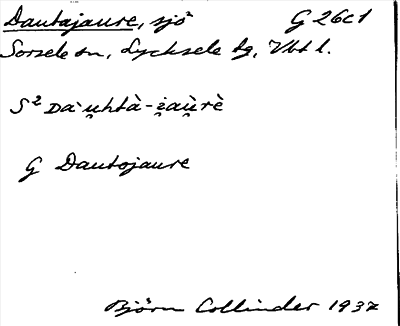 Dautajaure, sjö G 26c1
Sorsele sn, Lycksele lg, Vbt l.
S² Dàu̯htà-i̯àu̯rè
G Dautojaure
Björn Collinder 1937